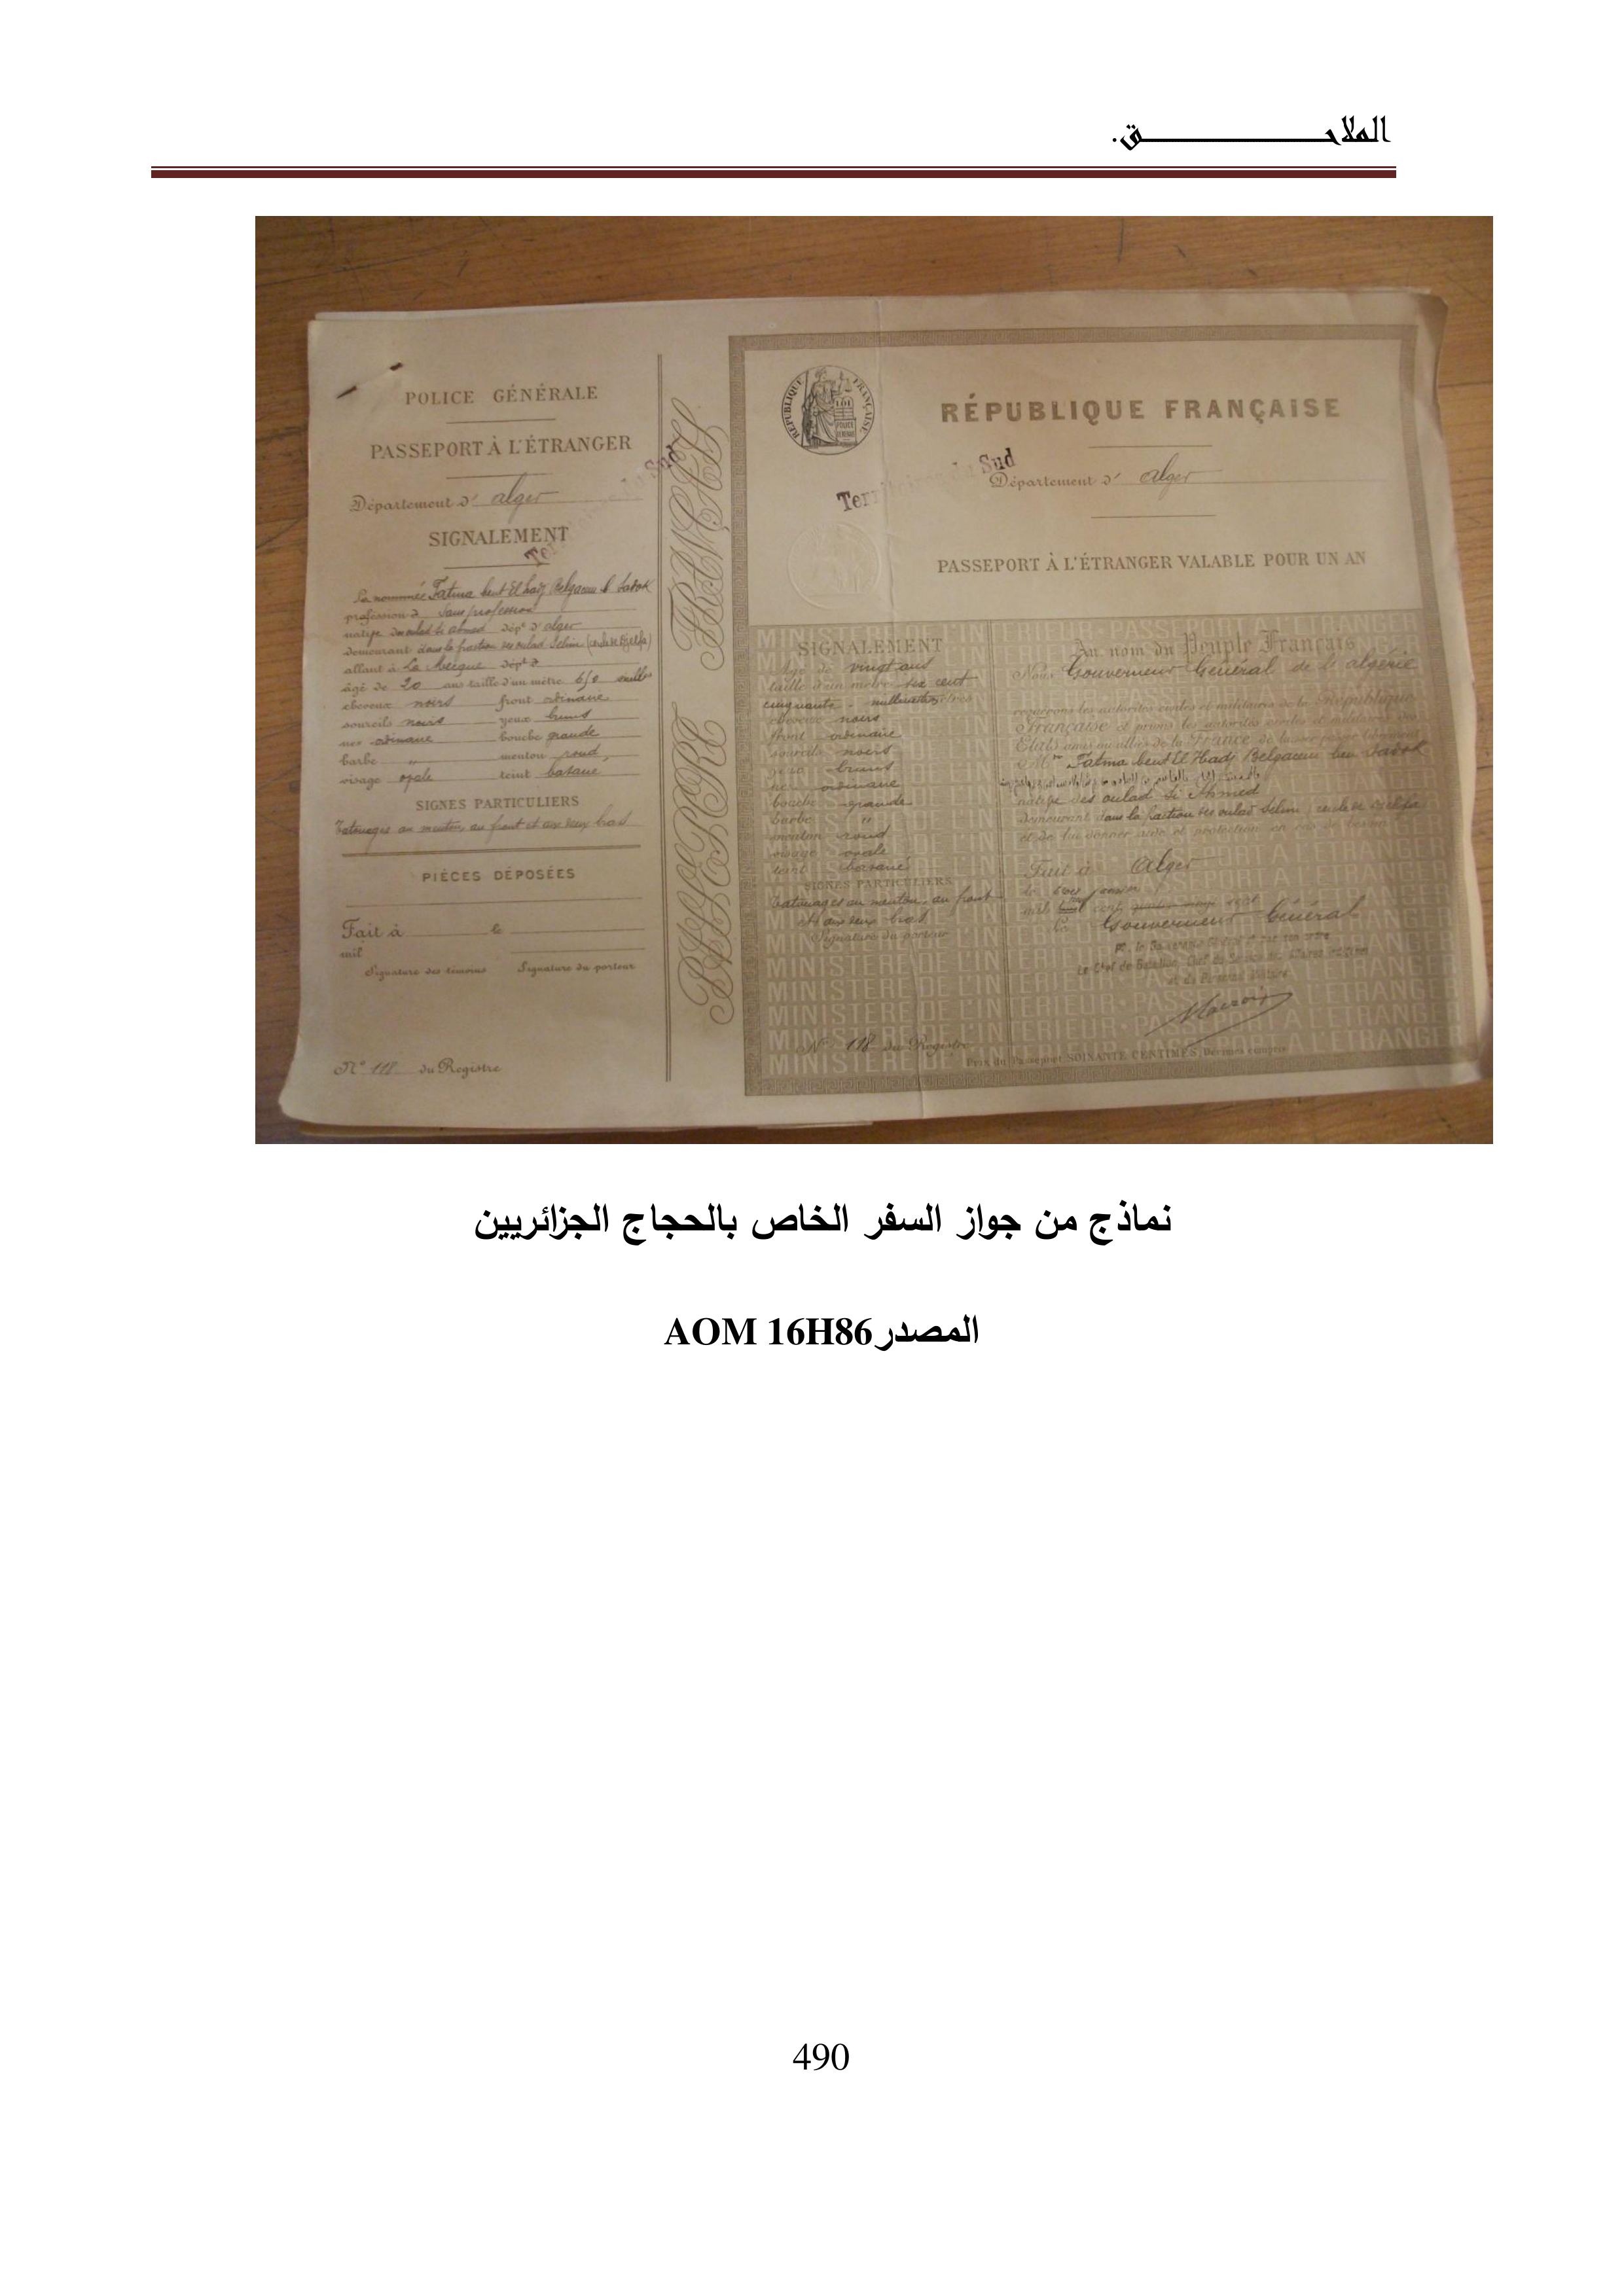 الملاحـــــــــــــــــق.
POLICE GÉNÉRALE
PASSEPORT À L'ÉTRANGER
Département d' alger
SIGNALEMENT
La nommée Fatma bent El hadj Belgacem
profession d sans profession
dépt d' alger
demeurant dans la fraction des oulad Selim
allant à La Mecque dépt d
âgé de 20 ans taille d'un mètre
cheveux noirs front ordinaire
sourcils noirs yeux bruns
nez ordinaire bouche grande
barbe " menton rond
visage ovale teint basané
SIGNES PARTICULIERS
Tatouages au menton, au front et aux deux bras
PIÈCES DÉPOSÉES
Fait à le
mil
Signature des témoins Signature du porteur
N° 118 du Registre
PASSEPORT FRANÇAIS
RÉPUBLIQUE FRANÇAISE
RÉPUBLIQUE FRANÇAISE
Territoires du Sud
Département d' alger
PASSEPORT À L'ÉTRANGER VALABLE POUR UN AN
SIGNALEMENT
Age de vingt ans
taille d'un mètre six cent
cinquante millimètres
cheveux noirs
front ordinaire
sourcils noirs
yeux bruns
nez ordinaire
bouche grande
barbe "
menton rond
visage ovale
teint basané
SIGNES PARTICULIERS
Tatouages au menton, au front
et aux deux bras
Signature du porteur
N° 118 du Registre
Au nom du Peuple Français
Nous Gouverneur Général de l'algérie
requérons les autorités civiles et militaires de la République
Française et prions les autorités civiles et militaires des
États amis ou alliés de la France de laisser passer librement
Fatma bent El Hadj Belgacem ben
natife des oulad Si Ahmed
demeurant dans la fraction des oulad Selim
et de lui donner aide et protection en cas de besoin
Fait à Alger
Le Gouverneur Général
Prix du Passeport SOIXANTE CENTIMES
MINISTÈRE DE L'INTÉRIEUR · PASSEPORT A L'ÉTRANGER
نماذج من جواز السفر الخاص بالحجاج الجزائريين
المصدر AOM 16H86
490